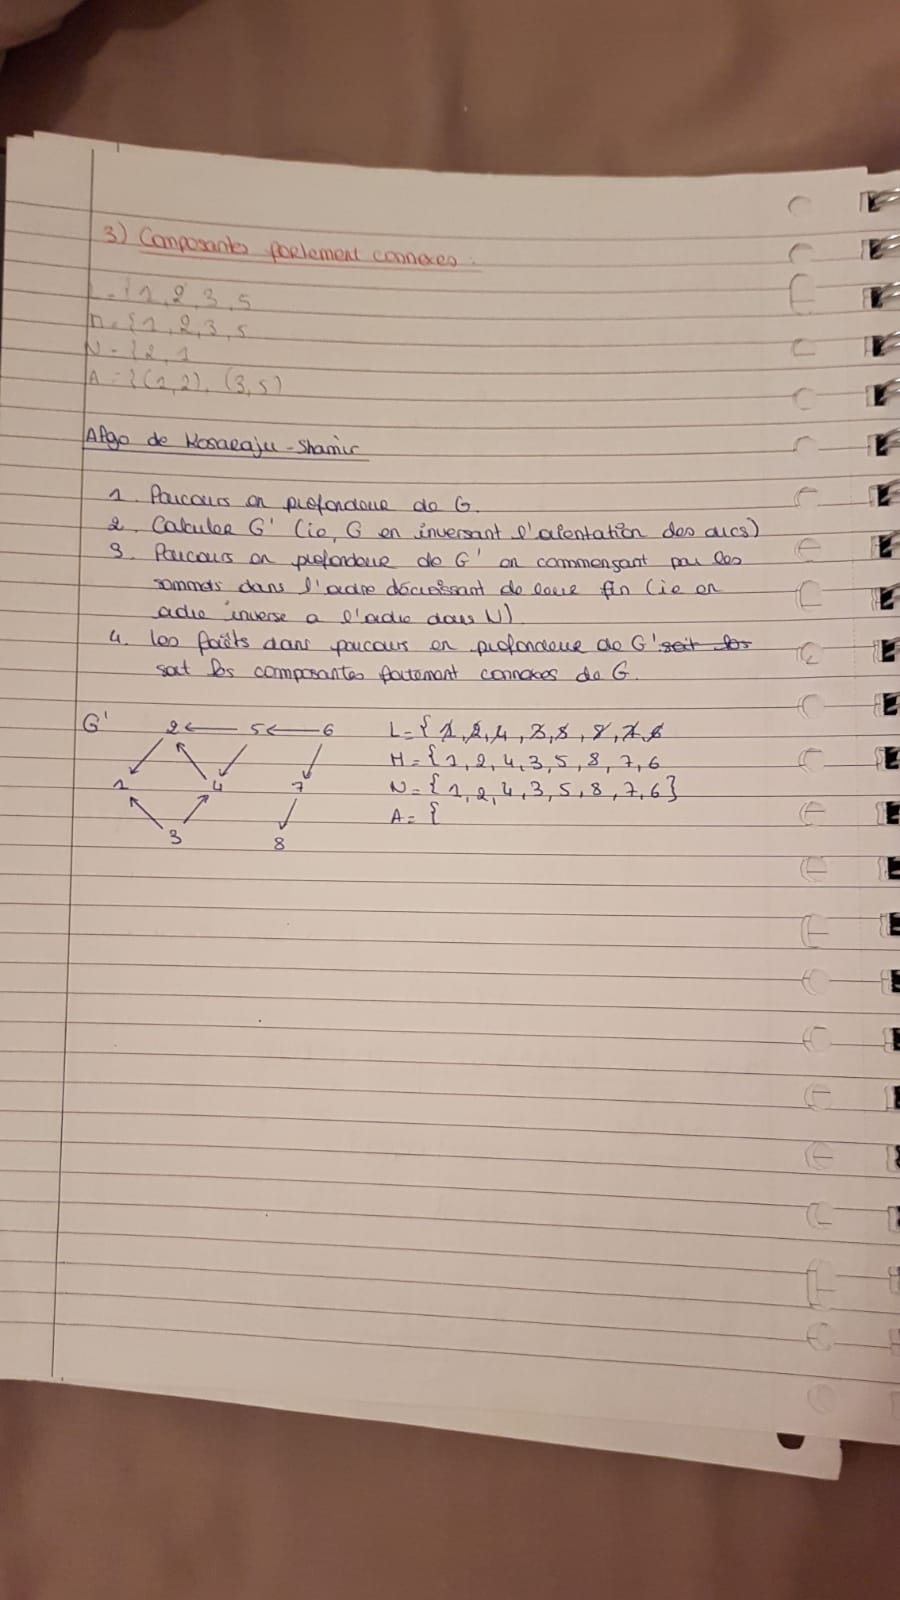 3) Composantes fortement connexes :
L = {1, 2, 3, 5
M = {1, 2, 3, 5
N = {2, 1
A = {(1,2), (3,5)
Algo de Kosaraju - Shamir
1. Parcours en profondeur de G.
2. Calculer G' (ie, G en inversant l'orientation des arcs)
3. Parcours en profondeur de G' en commençant par les
sommets dans l'ordre décroissant de leur fin (ie en
ordre inverse a l'ordre dans N)
4. les forêts dans parcours en profondeur de G' soit les
soit les composantes fortement connexes de G.
G' 2 ← 5 ← 6 L = { 1, 2, 4, 3, 5, 8, 7, 6
M = {1, 2, 4, 3, 5, 8, 7, 6
1 4 7 N = {1, 2, 4, 3, 5, 8, 7, 6}
A = {
3 8